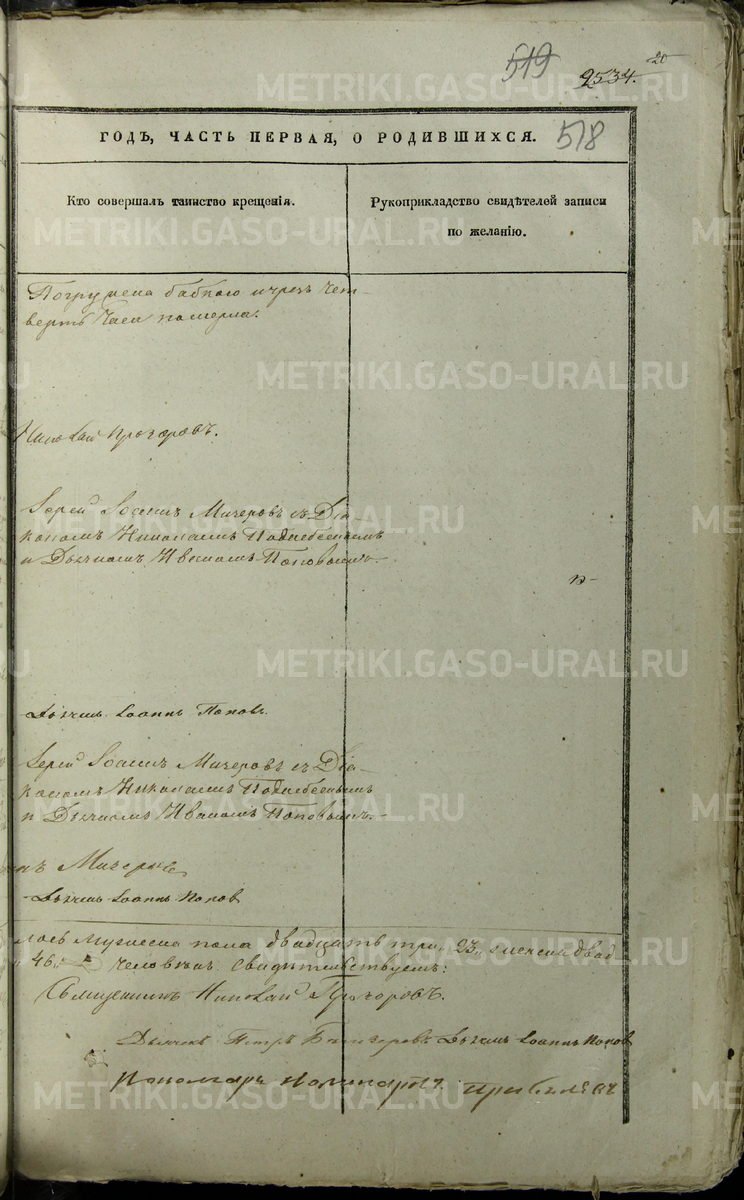 519
2534.
20
518
ГОДЪ, ЧАСТЬ ПЕРВАЯ, О РОДИВШИХСЯ.
Кто совершалъ таинство крещенія.
Рукоприкладство свидѣтелей записи
по желанію.
Погружена бабкою и чрезъ чет-
верть часа померла.
Николай Прохоровъ.
Іерей Іоаннъ Мичеровъ съ Діа-
кономъ Николаемъ
и Дьячкомъ Иваномъ Поповымъ.
Дьячекъ Іоаннъ Поповъ
Іерей Іоаннъ Мичеровъ съ Діа-
кономъ Николаемъ
и Дьячкомъ Иваномъ Поповымъ.
нъ Мичеровъ
Дьячекъ Іоаннъ Поповъ
лось мужеска пола двадцать три, 23, а женска двад
46, человѣкъ свидѣтельствуемъ:
Священникъ Николай Прохоровъ.
Дьячекъ Петръ Дьячекъ Іоаннъ Поповъ
Пономарь
METRIKI.GASO-URAL.RU